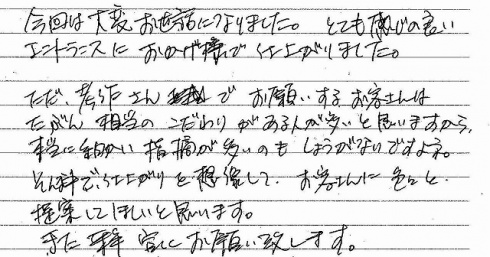 今回は大変お世話になりました。とても感じの良い
エントランスにおかげ様で仕上がりました。
ただ、さんでお願いするお客さんは
たぶん相当のこだわりがある人が多いと思いますから、
本当に細かい指摘が多いのもしょうがないですよね。
そんな訳で、仕上がりを想像して、お客さんに色々と
提案してほしいと思います。
また是非宜しくお願い致します。